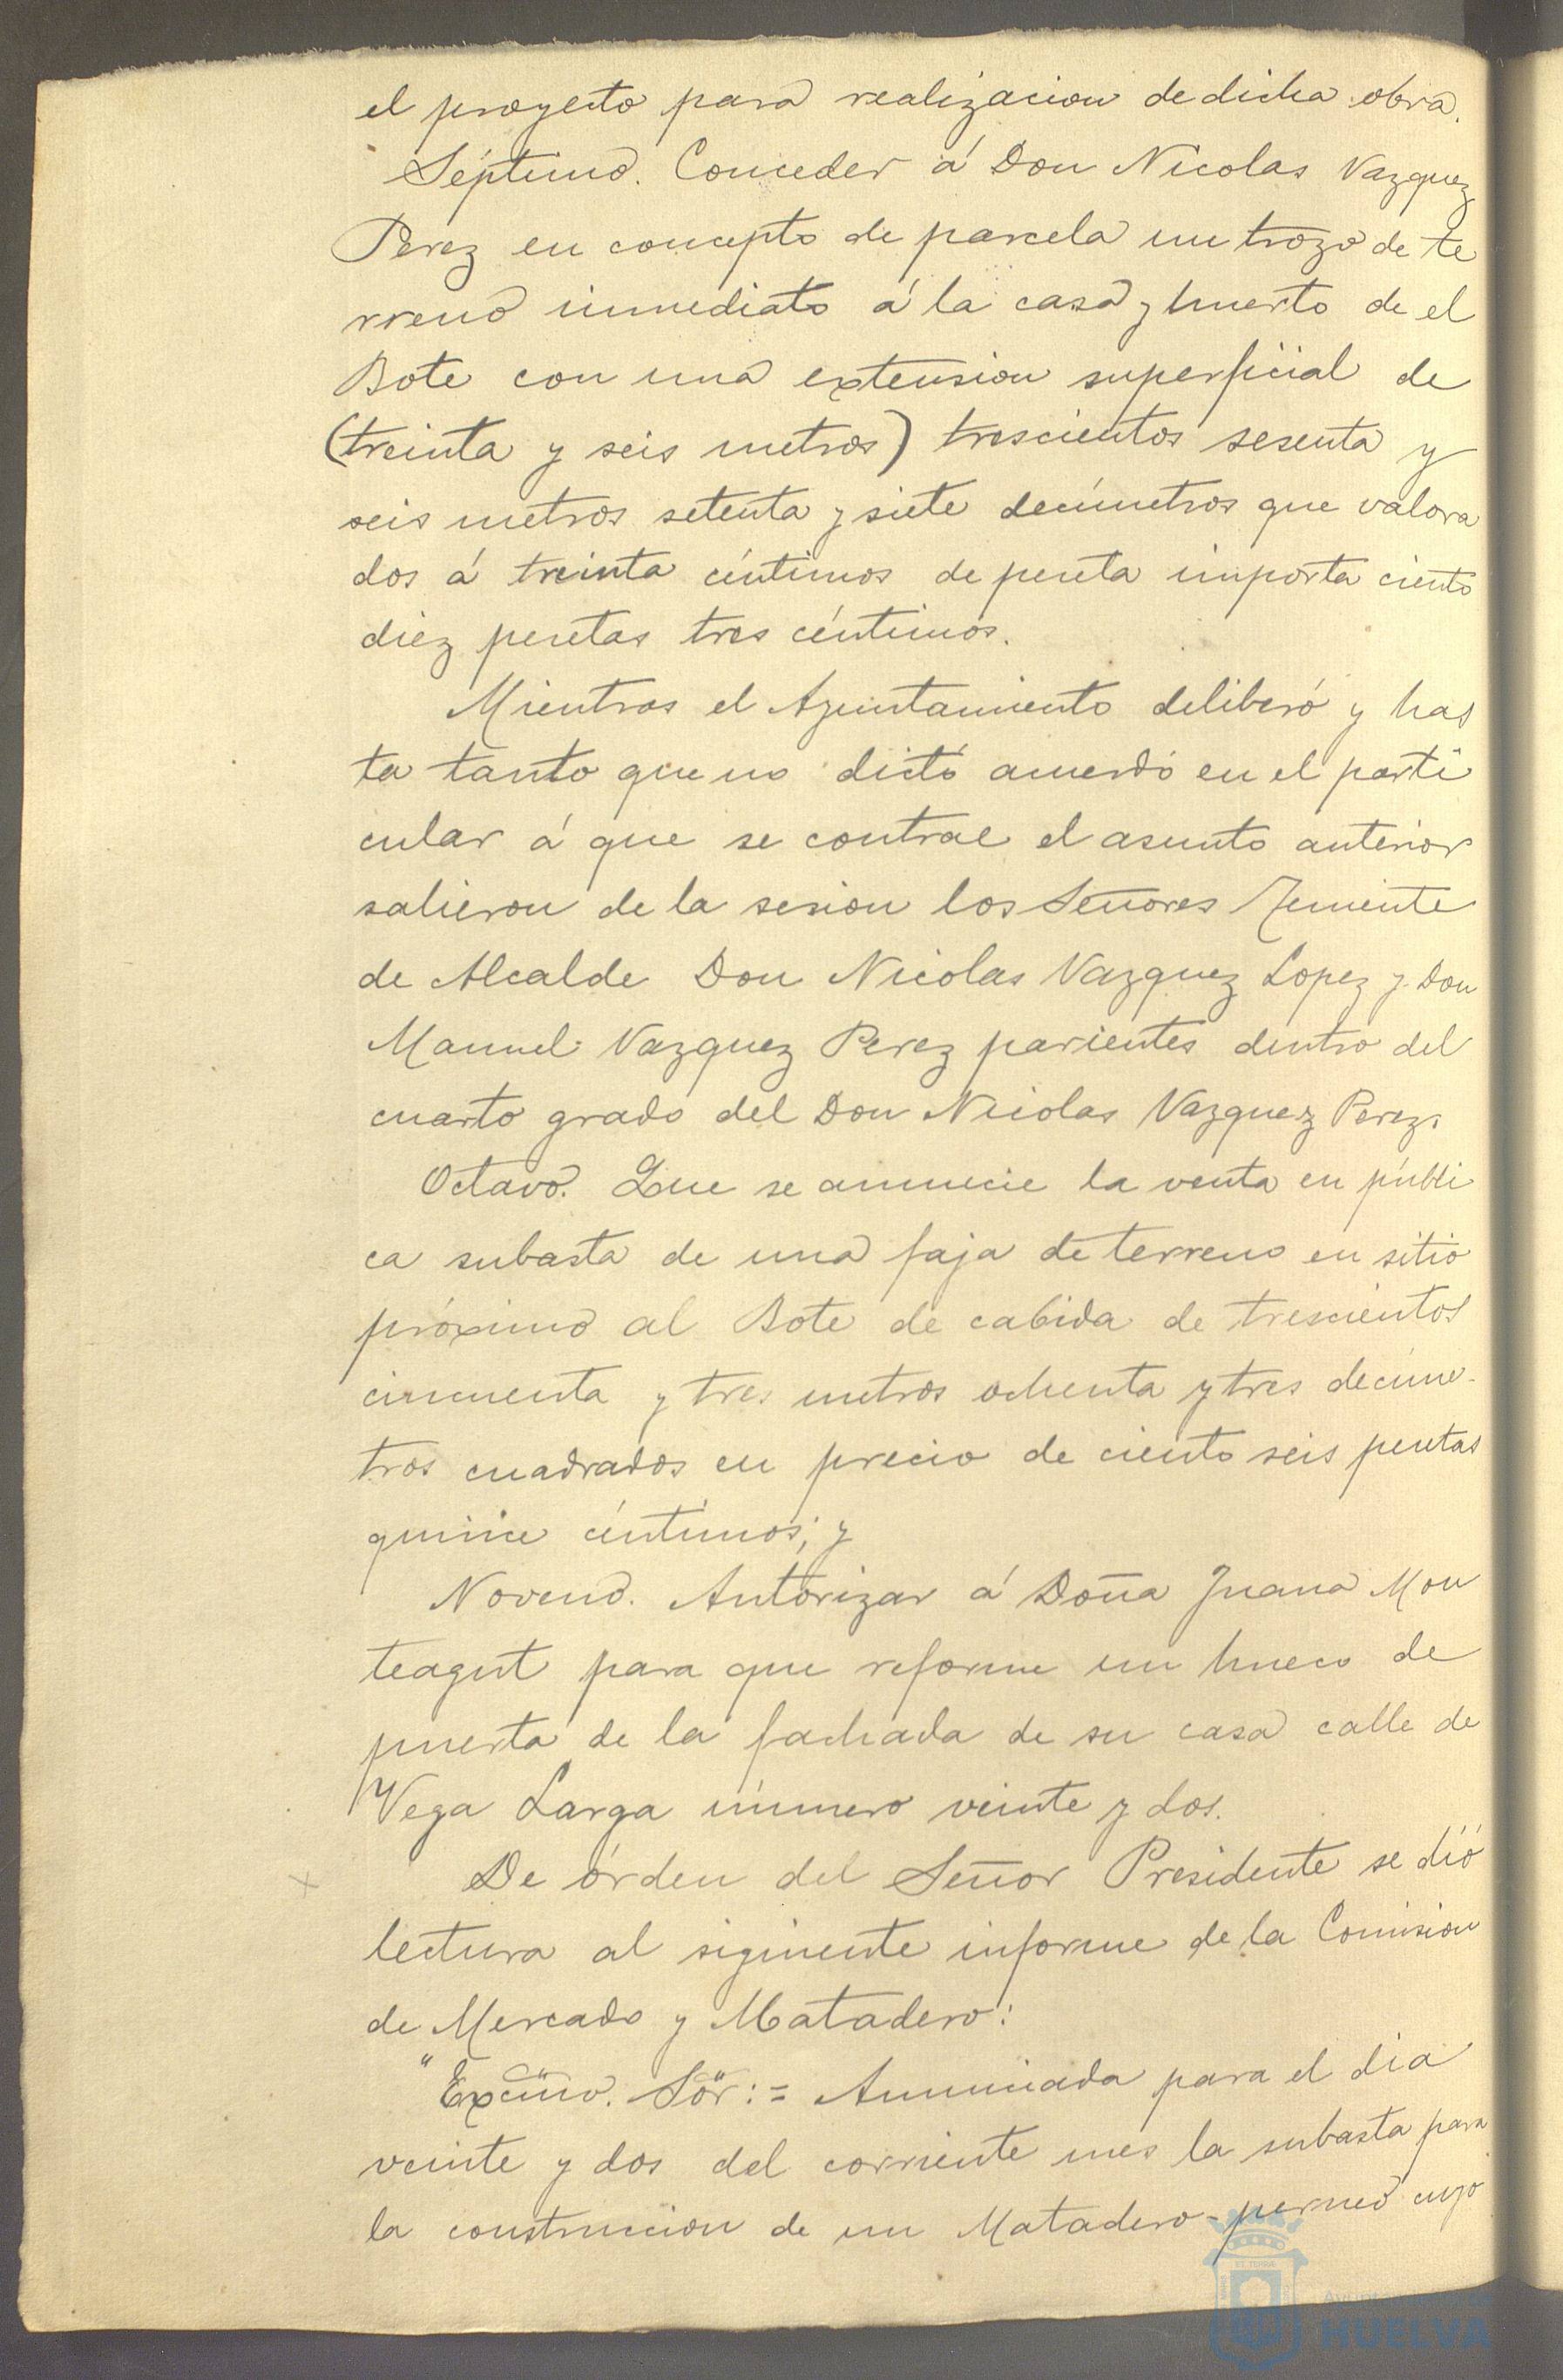 el proyecto para realizacion de dicha obra.
Séptimo. Conceder á Don Nicolas Vazquez
Perez en concepto de parcela un trozo de te
rreno inmediato á la casa y huerto de el
Bote con una extension superficial de
(treinta y seis metros) trescientos sesenta y
seis metros setenta y siete decímetros que valora
dos á treinta céntimos de peseta importa ciento
diez pesetas tres céntimos.
Mientras el Ayuntamiento deliberó y has
ta tanto que no dictó acuerdo en el parti
cular á que se contrae el asunto anterior
salieron de la sesion los Señores Teniente
de Alcalde Don Nicolas Vazquez Lopez y Don
Manuel Vazquez Perez parientes dentro del
cuarto grado del Don Nicolas Vazquez Perez.
Octavo. Que se anuncie la venta en públi
ca subasta de una faja de terreno en sitio
próximo al Bote de cabida de trescientos
cincuenta y tres metros ochenta y tres decíme-
tros cuadrados en precio de ciento seis pesetas
quince céntimos; y
Noveno. Autorizar á Doña Juana Mon
teagut para que reforme un hueco de
puerta de la fachada de su casa calle de
Vega Larga número veinte y dos.
De órden del Señor Presidente se dió
lectura al siguiente informe de la Comision
de Mercado y Matadero:
"Excmo. Sör: = Anunciada para el dia
veinte y dos del corriente mes la subasta para
la construccion de un Matadero-perneo cuyo
Ayuntamiento de
HUELVA